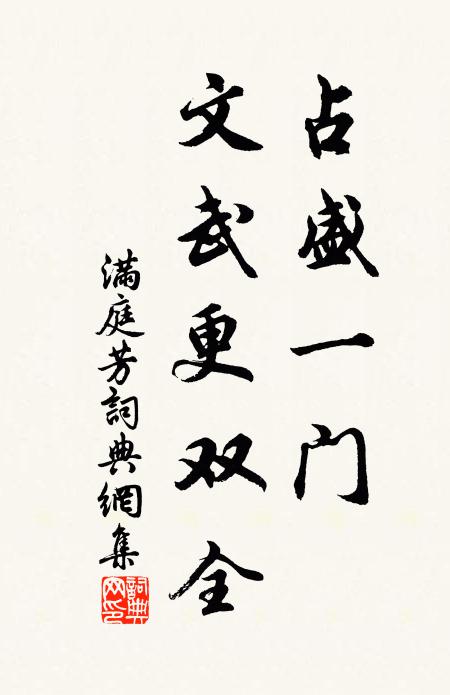 占盛一门
文武更双全
满庭芳詞典網集
詞典
网印